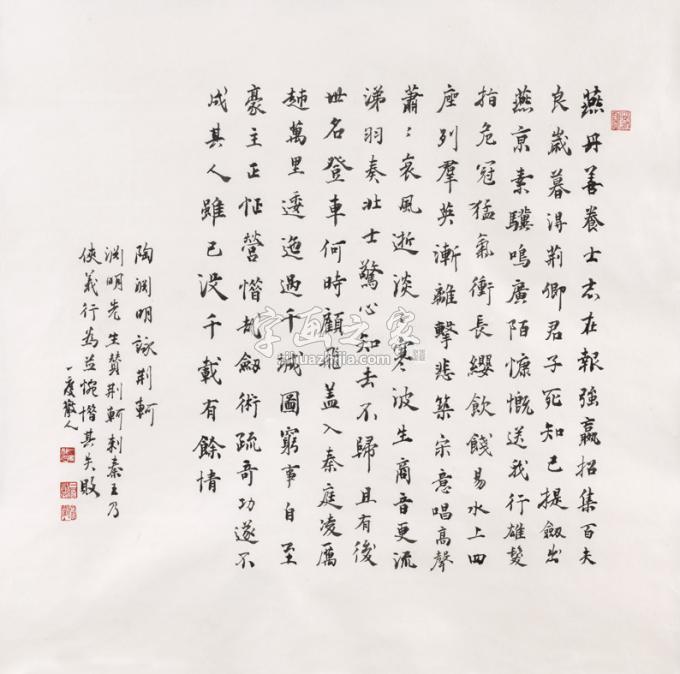 燕丹善養士志在報強嬴招集百夫
良歲暮得荊卿君子死知己提劍出
燕京素驥鳴廣陌慷慨送我行雄髮
指危冠猛氣衝長纓飲餞易水上四
座列羣英漸離擊悲築宋意唱高聲
蕭〻哀風逝淡〻寒波生商音更流
涕羽奏壯士驚心知去不歸且有後
世名登車何時顧飛蓋入秦庭凌厲
越萬里逶迤過千城圖窮事自至
豪主正怔營惜哉劍術疏奇功遂不
成其人雖已没千載有餘情
陶淵明詠荊軻
淵明先生贊荊軻刺秦王乃
俠義行為益惋惜其失敗
一度散人
字画之家